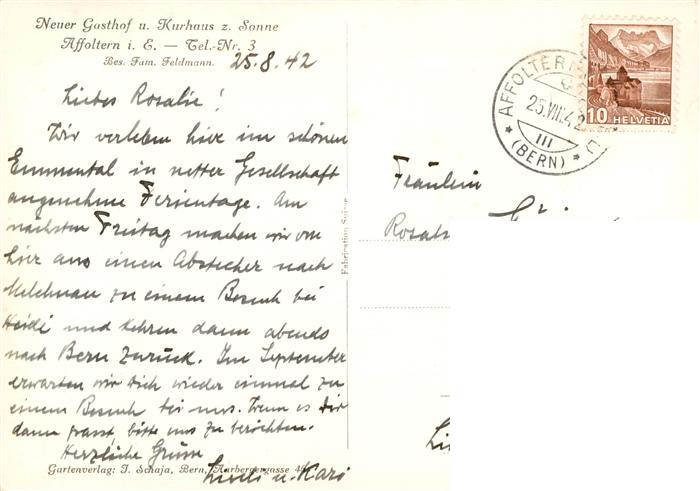 Neuer Gasthof u. Kurhaus z. Sonne
Affoltern i. E. — Tel.-Nr. 3
Bes. Fam. Feldmann.
25.8.42
Liebes Rosalie!
Wir verleben hier im schönen
Emmental in netter Gesellschaft
angenehme Ferientage. Am
nächsten Freitag machen wir von
hier aus einen Abstecher nach
Melchnau zu einem Besuch bei
Heidi und kehren dann abends
nach Bern zurück. Im September
erwarten wir Dich wieder einmal zu
einem Besuch bei uns. Wenn es Dir
dann passt, bitte uns zu berichten.
Herzliche Grüsse
u. Karo
Gartenverlag: J. Schaja, Bern, Aarbergergasse 46
Fabrication Suisse
AFFOLTERN
25.VIII.42
III
(BERN)
10 HELVETIA
Fräulein